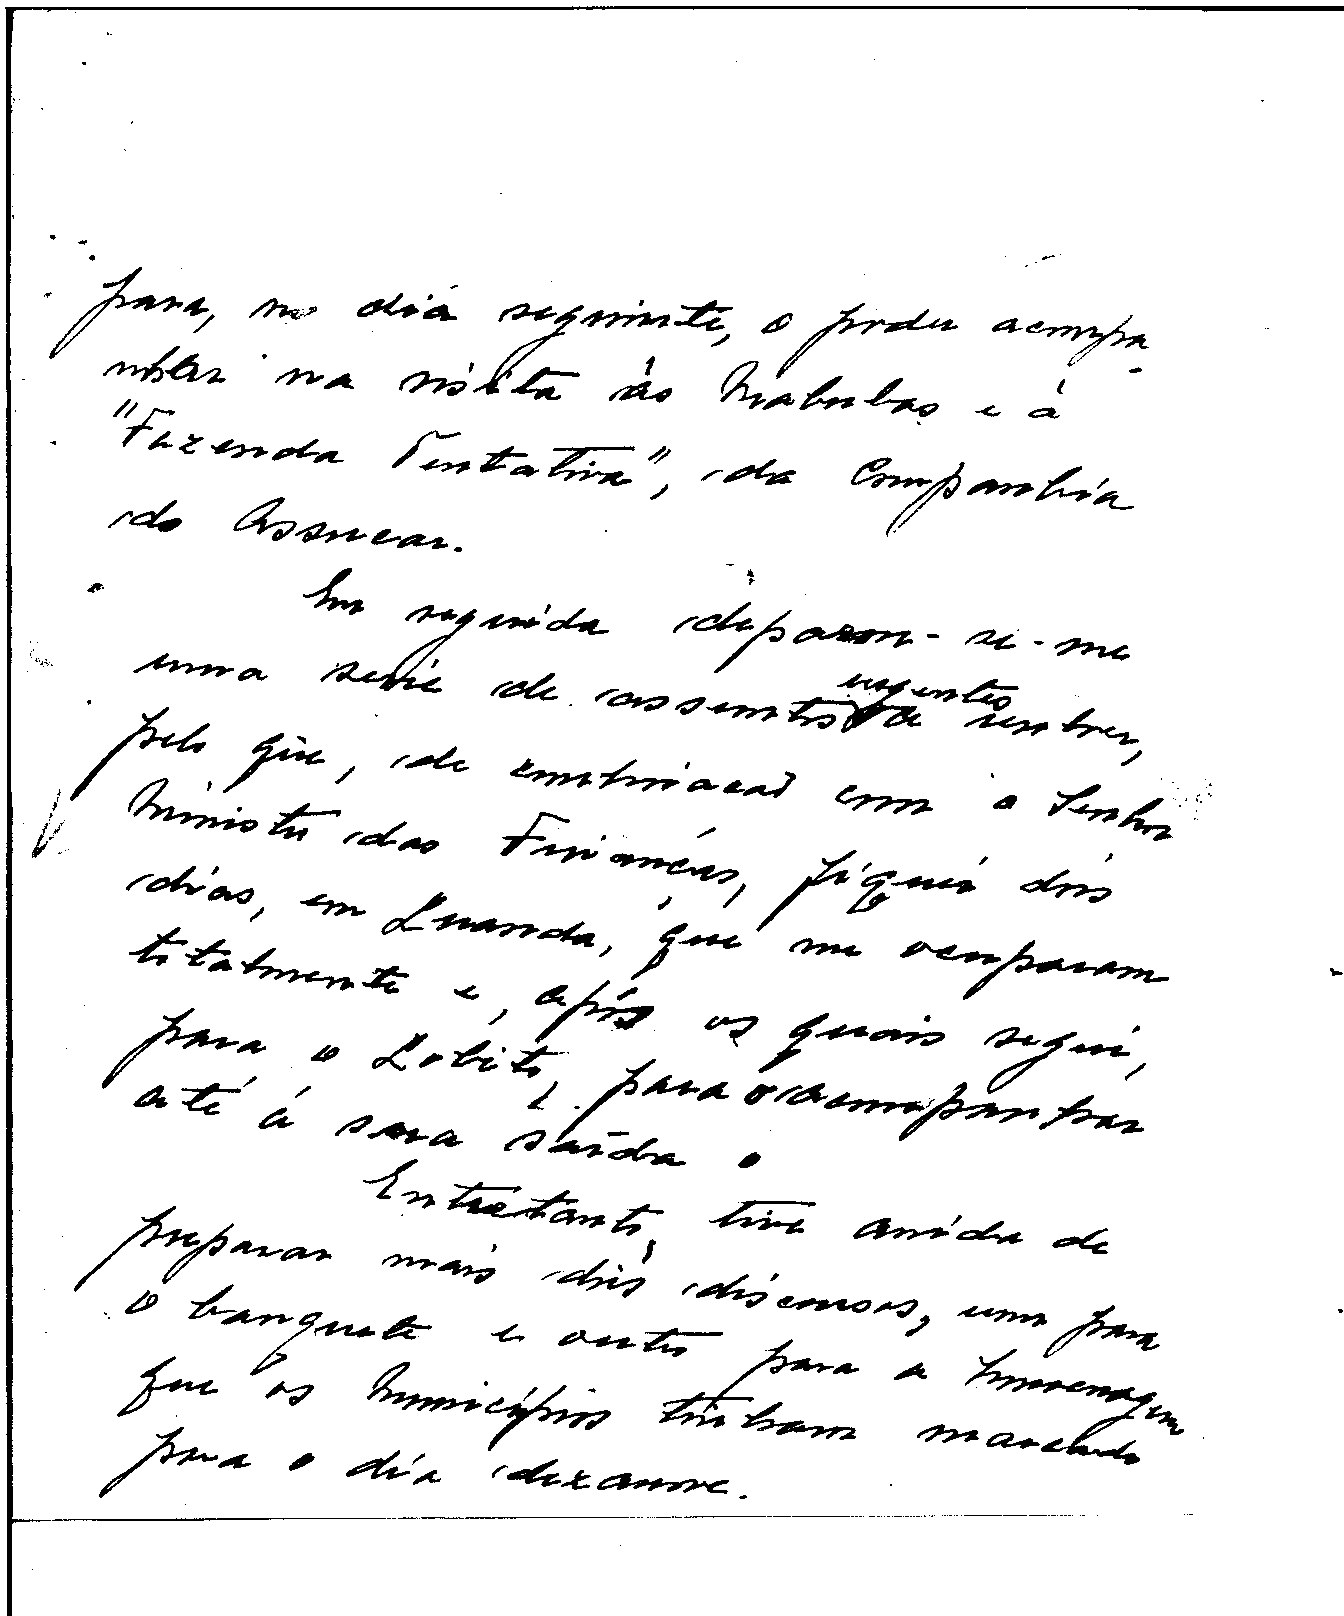 para, no dia seguinte, o poder acompa-
nhar na visita às Mabubas e á
"Fazenda Tentativa", da Companhia
do Assucar.
Em seguida deparou-se-me
uma serie de assuntos urgentes a resolver,
pelo que, de combinação com o Senhor
Ministro das Finanças, fiquei dois
dias, em Luanda, que me ocuparam
totalmente e, após os quais segui,
para o Lobito, para o acompanhar
até á sua saída.
Entretanto, tive ainda de
preparar mais dois discursos, um para
o banquete e outro para a homenagem
que os Municípios tinham marcado
para o dia dezanove.